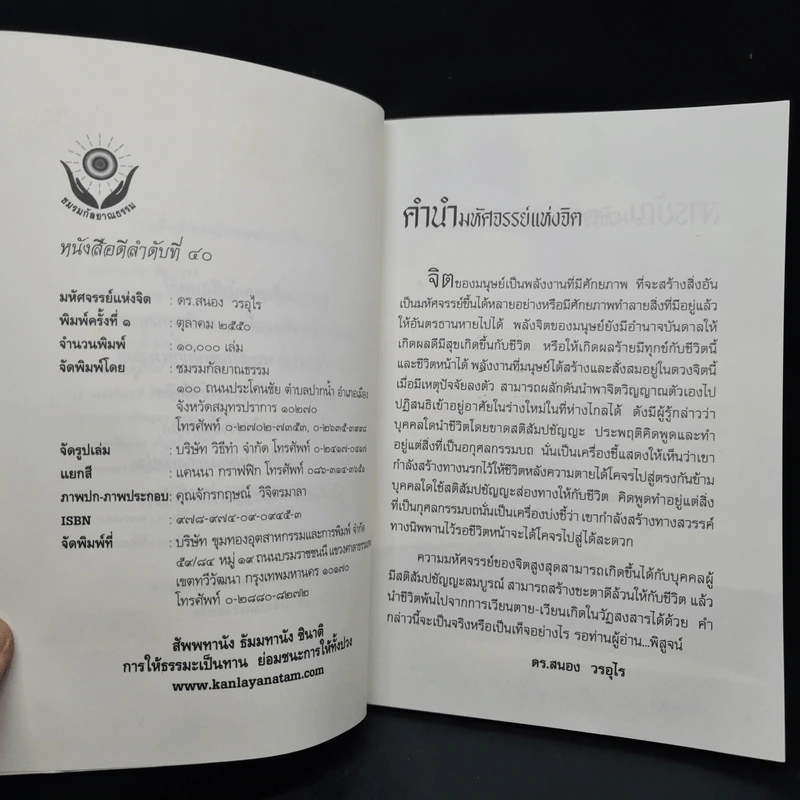 ชมรมกัลยาณธรรม
หนังสือดีลำดับที่ ๔๐
มหัศจรรย์แห่งจิต : ดร.สนอง วรอุไร
พิมพ์ครั้งที่ ๑ : ตุลาคม ๒๕๕๐
จำนวนพิมพ์ : ๑๐,๐๐๐ เล่ม
จัดพิมพ์โดย : ชมรมกัลยาณธรรม
๑๐๐ ถนนประโคนชัย ตำบลปากน้ำ อำเภอเมือง
จังหวัดสมุทรปราการ ๑๐๒๗๐
โทรศัพท์ ๐-๒๗๐๒-๗๓๕๓, ๐-๒๖๓๕-๓๙๙๘
จัดรูปเล่ม : บริษัท วิธีทำ จำกัด โทรศัพท์ ๐-๒๔๑๗-๐๔๑๗
แยกสี : แคนนา กราฟฟิก โทรศัพท์ ๐๘๖-๓๑๔-๓๖๕๑
ภาพปก-ภาพประกอบ : คุณจักรกฤษณ์ วิจิตรมาลา
ISBN : ๙๗๘-๙๗๔-๐๑-๐๙๔๕-๓
จัดพิมพ์ที่ : บริษัท ขุมทองอุตสาหกรรมและการพิมพ์ จำกัด
๕๙/๘๔ หมู่ ๑๙ ถนนบรมราชชนนี แขวงศาลาธรรมสพน์
เขตทวีวัฒนา กรุงเทพมหานคร ๑๐๑๗๐
โทรศัพท์ ๐-๒๘๘๐-๘๒๗๒
สัพพทานัง ธัมมทานัง ชินาติ
การให้ธรรมะเป็นทาน ย่อมชนะการให้ทั้งปวง
www.kanlayanatam.com
คำนำมหัศจรรย์แห่งจิต
จิตของมนุษย์เป็นพลังงานที่มีศักยภาพ ที่จะสร้างสิ่งอัน
เป็นมหัศจรรย์ขึ้นได้หลายอย่างหรือมีศักยภาพทำลายสิ่งที่มีอยู่แล้ว
ให้อันตรธานหายไปได้ พลังจิตของมนุษย์ยังมีอำนาจบันดาลให้
เกิดผลดีมีสุขเกิดขึ้นกับชีวิต หรือให้เกิดผลร้ายมีทุกข์กับชีวิตนี้
และชีวิตหน้าได้ พลังงานที่มนุษย์ได้สร้างและสั่งสมอยู่ในดวงจิตนี้
เมื่อมีเหตุปัจจัยลงตัว สามารถผลักดันนำพาจิตวิญญาณตัวเองไป
ปฏิสนธิเข้าอยู่อาศัยในร่างใหม่ในที่ห่างไกลได้ ดังมีผู้รู้กล่าวว่า
บุคคลใดนำชีวิตโดยขาดสติสัมปชัญญะ ประพฤติคิดพูดและทำ
อยู่แต่สิ่งที่เป็นอกุศลกรรมบถ นั่นเป็นเครื่องชี้แสดงให้เห็นว่าเขา
กำลังสร้างทางนรกไว้ให้ชีวิตหลังความตายได้โคจรไปสู่ตรงกันข้าม
บุคคลใดใช้สติสัมปชัญญะส่องทางให้กับชีวิต คิดพูดทำอยู่แต่สิ่ง
ที่เป็นกุศลกรรมบถนั่นเป็นเครื่องบ่งชี้ว่า เขากำลังสร้างทางสวรรค์
ทางนิพพานไว้รอชีวิตหน้าจะได้โคจรไปสู่ได้สะดวก
ความมหัศจรรย์ของจิตสูงสุดสามารถเกิดขึ้นได้กับบุคคลผู้
มีสติสัมปชัญญะสมบูรณ์ สามารถสร้างชะตาดีล้วนให้กับชีวิต แล้ว
นำชีวิตพ้นไปจากการเวียนตาย-เวียนเกิดในวัฏสงสารได้ด้วย คำ
กล่าวนี้จะเป็นจริงหรือเป็นเท็จอย่างไร รอท่านผู้อ่าน...พิสูจน์
ดร.สนอง วรอุไร